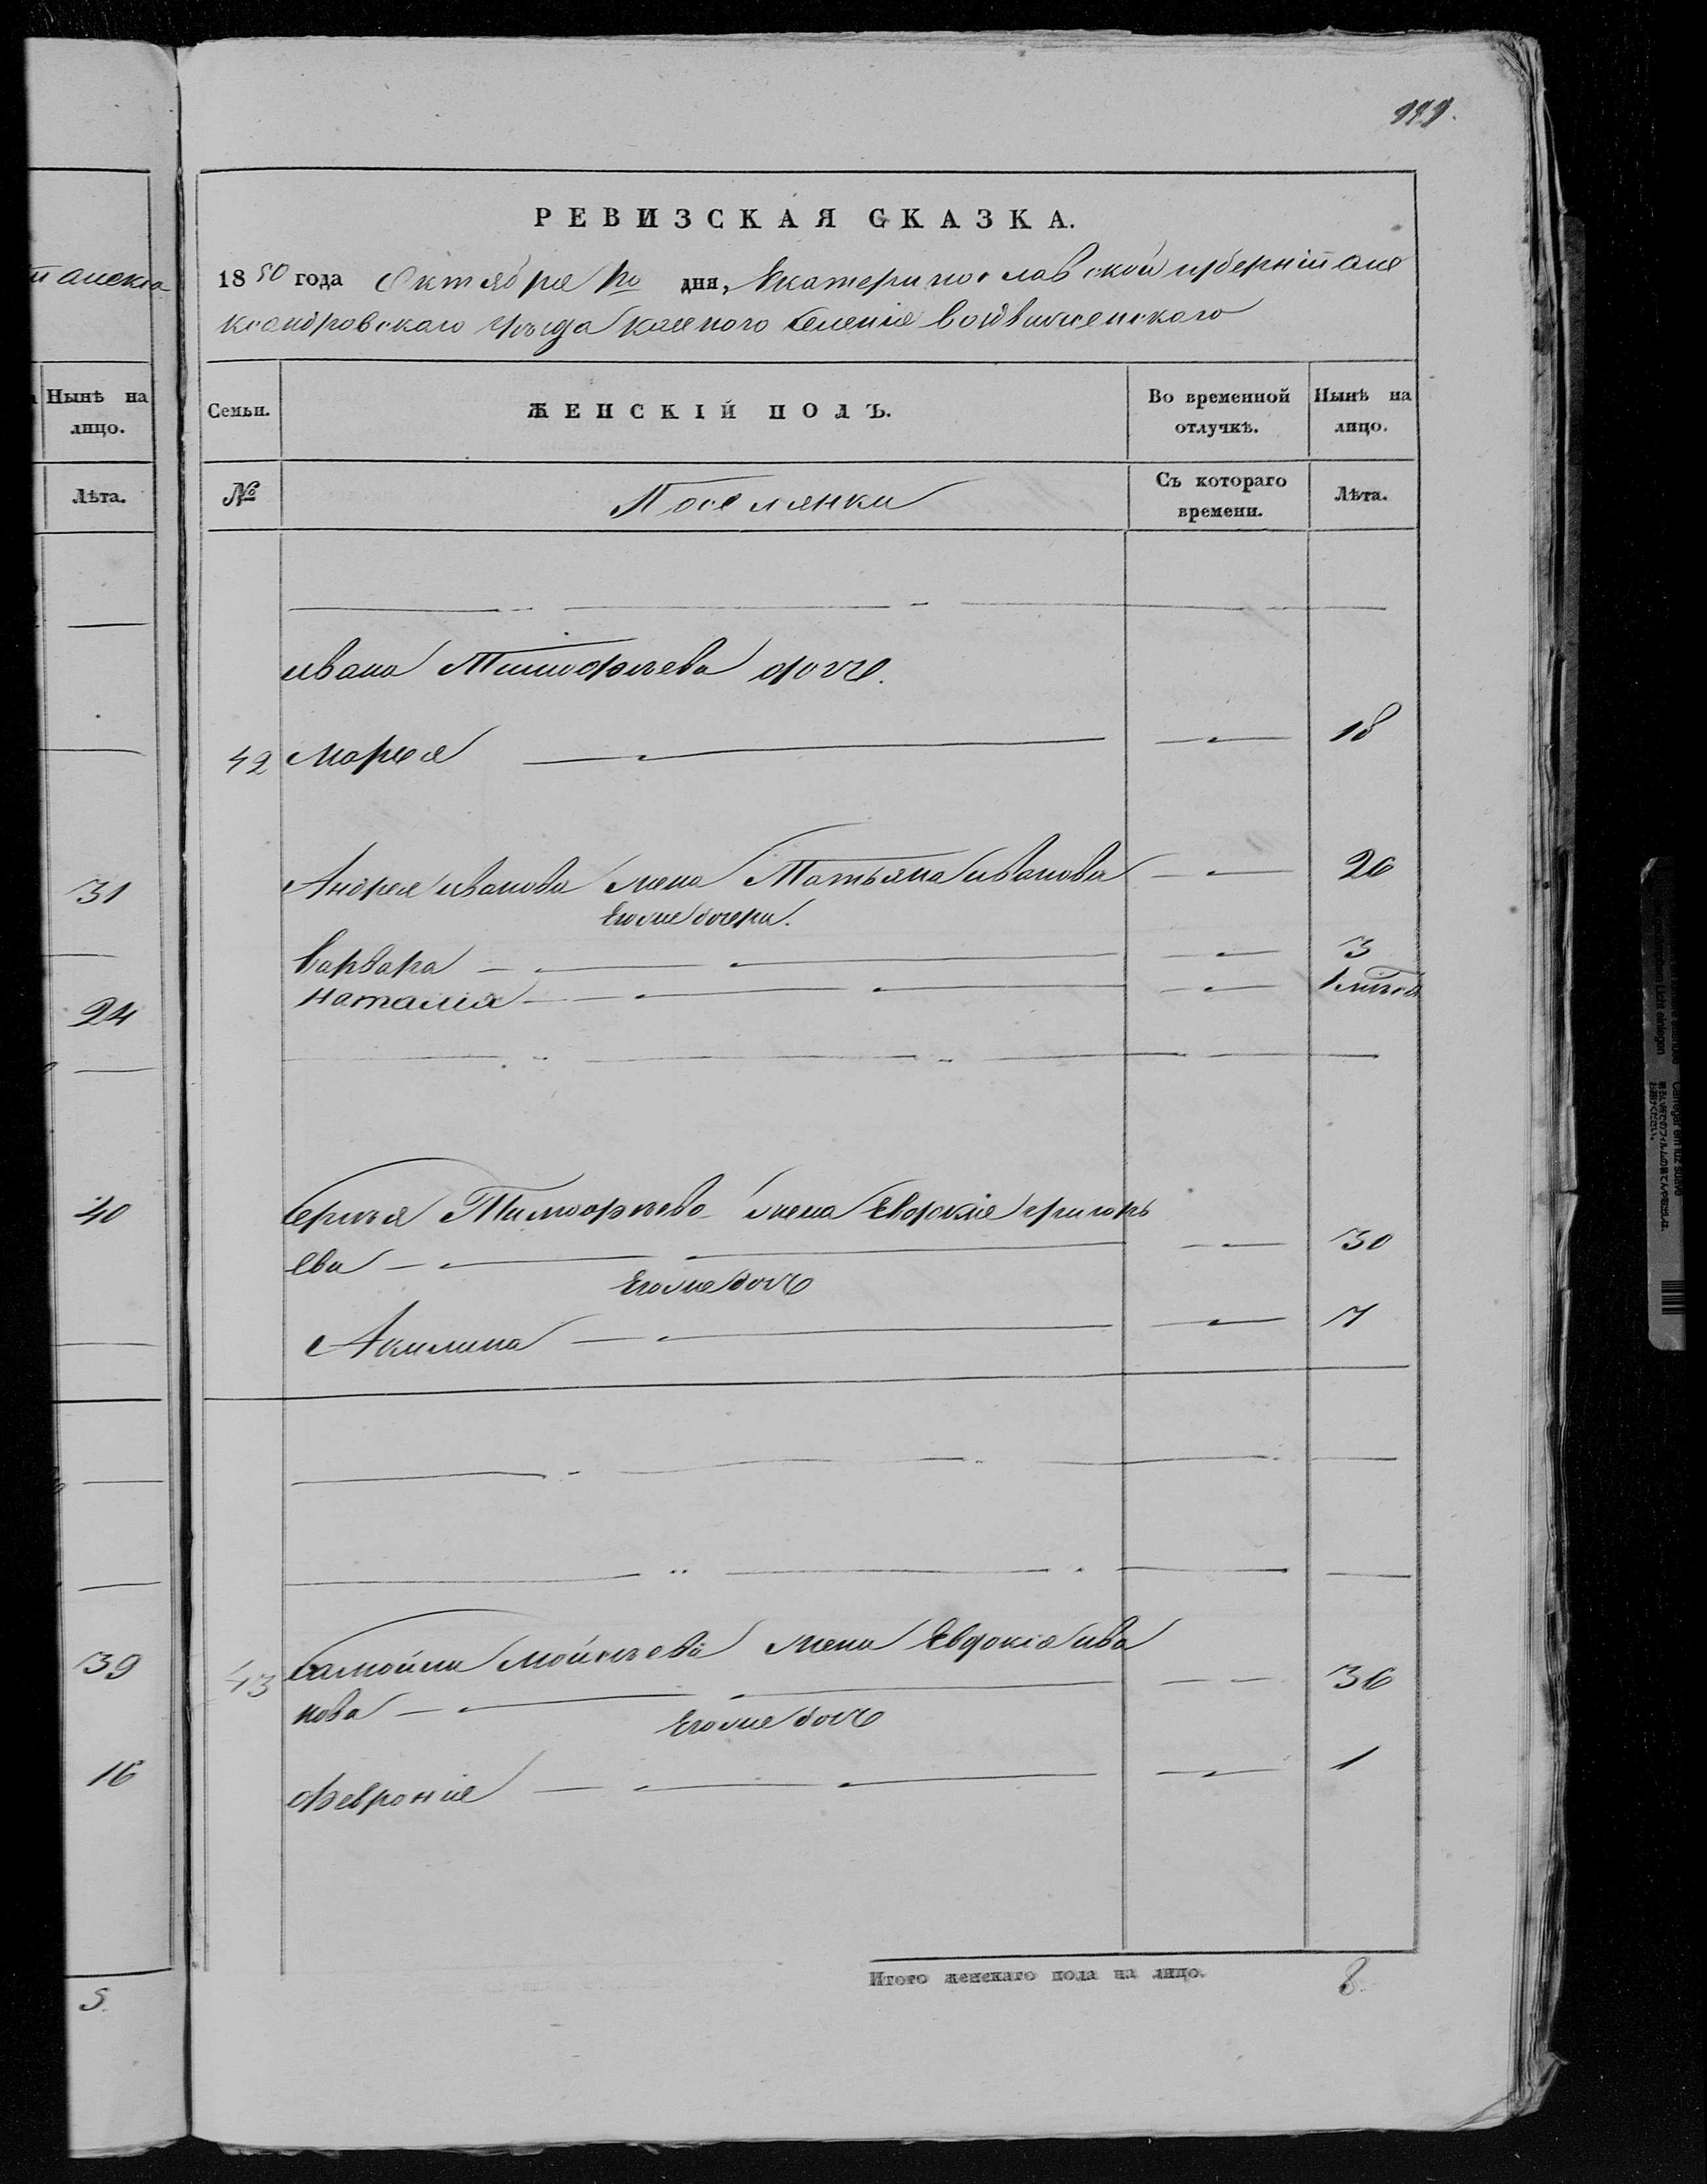 РЕВИЗСКАЯ СКАЗКА.
1850 года Октября 1го дня, Екатеринославской губерніи Але
ксандровскаго уезда казеного селенія Воздвиженскаго
Семьи. ЖЕНСКІЙ ПОЛЪ. Во временной отлучкѣ. Нынѣ на лицо.
№ Поселянки Съ котораго времени. Лѣта.
Ивана Тимофѣева дочь.
42 Марья 18
Андрея Иванова жена Татьяна Иванова 26
Его же дочери.
Варвара 3
Наталия
Сергѣя Тимофѣева жена Евдокия Григорь
ева 30
Его же дочь
Акилина 7
43 Самойли Мойсѣева жена Евдокія Ива
нова 36
Его же дочь
Феврония 1
Итого женскаго пола на лицо. 8
Нынѣ на
лицо.
Лѣта.
31
24
40
39
16
5.